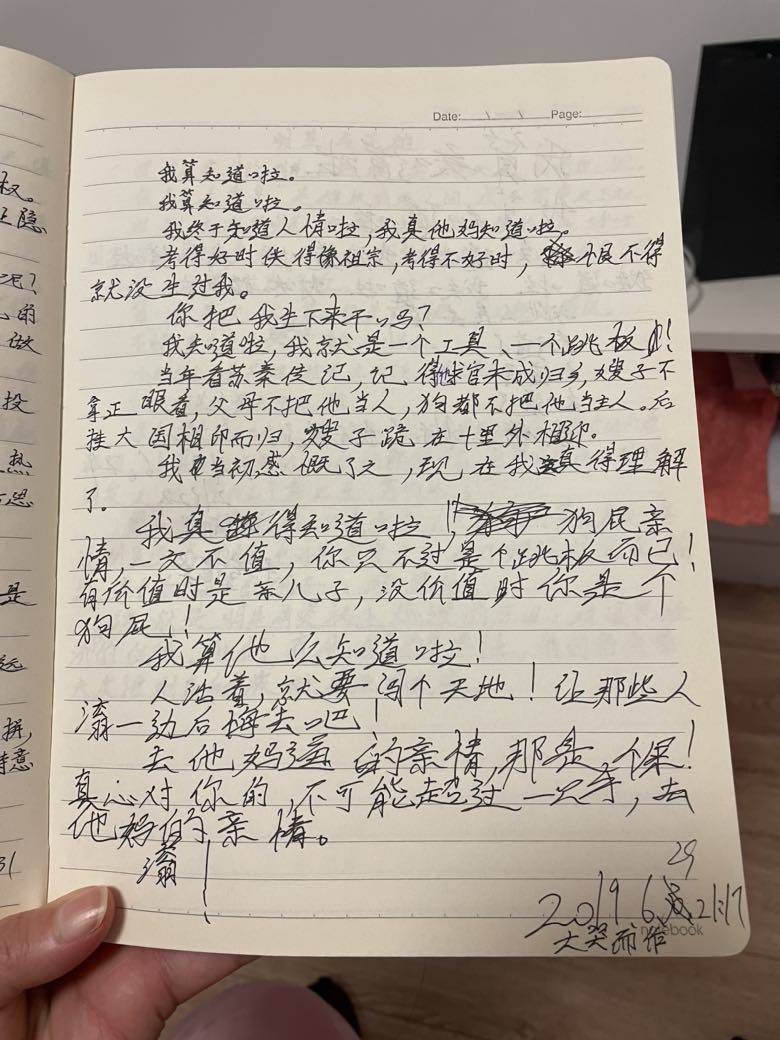 权。
隐
Date: / / Page:
我算知道啦。
我算知道啦。
我终于知道人情啦，我真他妈知道啦。
考得好时供得像祖宗，考得不好时，恨不得
就没生过我。
呢？
你把我生下来干吗？
的
做
我知道啦，我就是一个工具、一个跳板！
当年看苏秦传记，记得他官未成归乡，嫂子不
投
拿正眼看，父母不把他当人，狗都不把他当主人。后
挂六国相印而归，嫂子跪在十里外相迎。
热
我当初感慨了之，现在我真得理解
思
了。
我真得知道啦！狗屁亲
情，一文不值，你只不过是个跳板而已！
是
有价值时是亲儿子，没价值时你是个
狗屁！
我算他么知道啦！
远
人活着，就要闯个天地！让那些人
拼，
滚一边后悔去吧！
意
去他妈逼的亲情，那是个屎！
真心对你的，不可能超过一只手，去
他妈的亲情。
滚！
29
2019 6 21:17
notebook
大哭而作